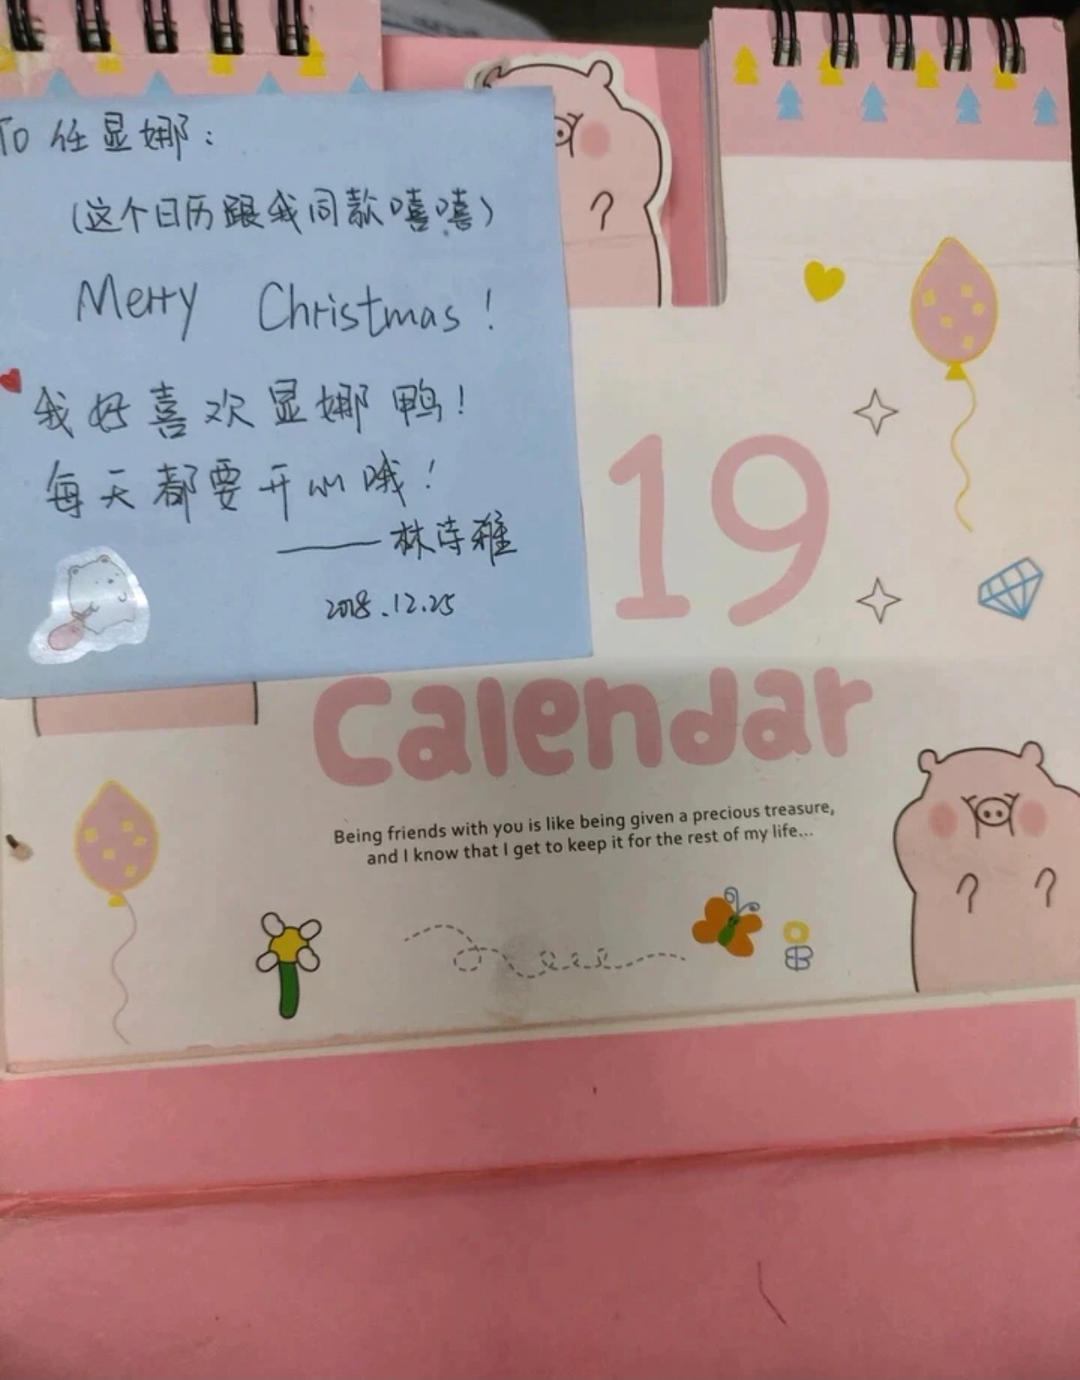 To 任显娜：
（这个日历跟我同款嘻嘻）
Merry Christmas！
我好喜欢显娜鸭！
每天都要开心哦！
——林诗雅
2018.12.25
19
Calendar
Being friends with you is like being given a precious treasure,
and I know that I get to keep it for the rest of my life...